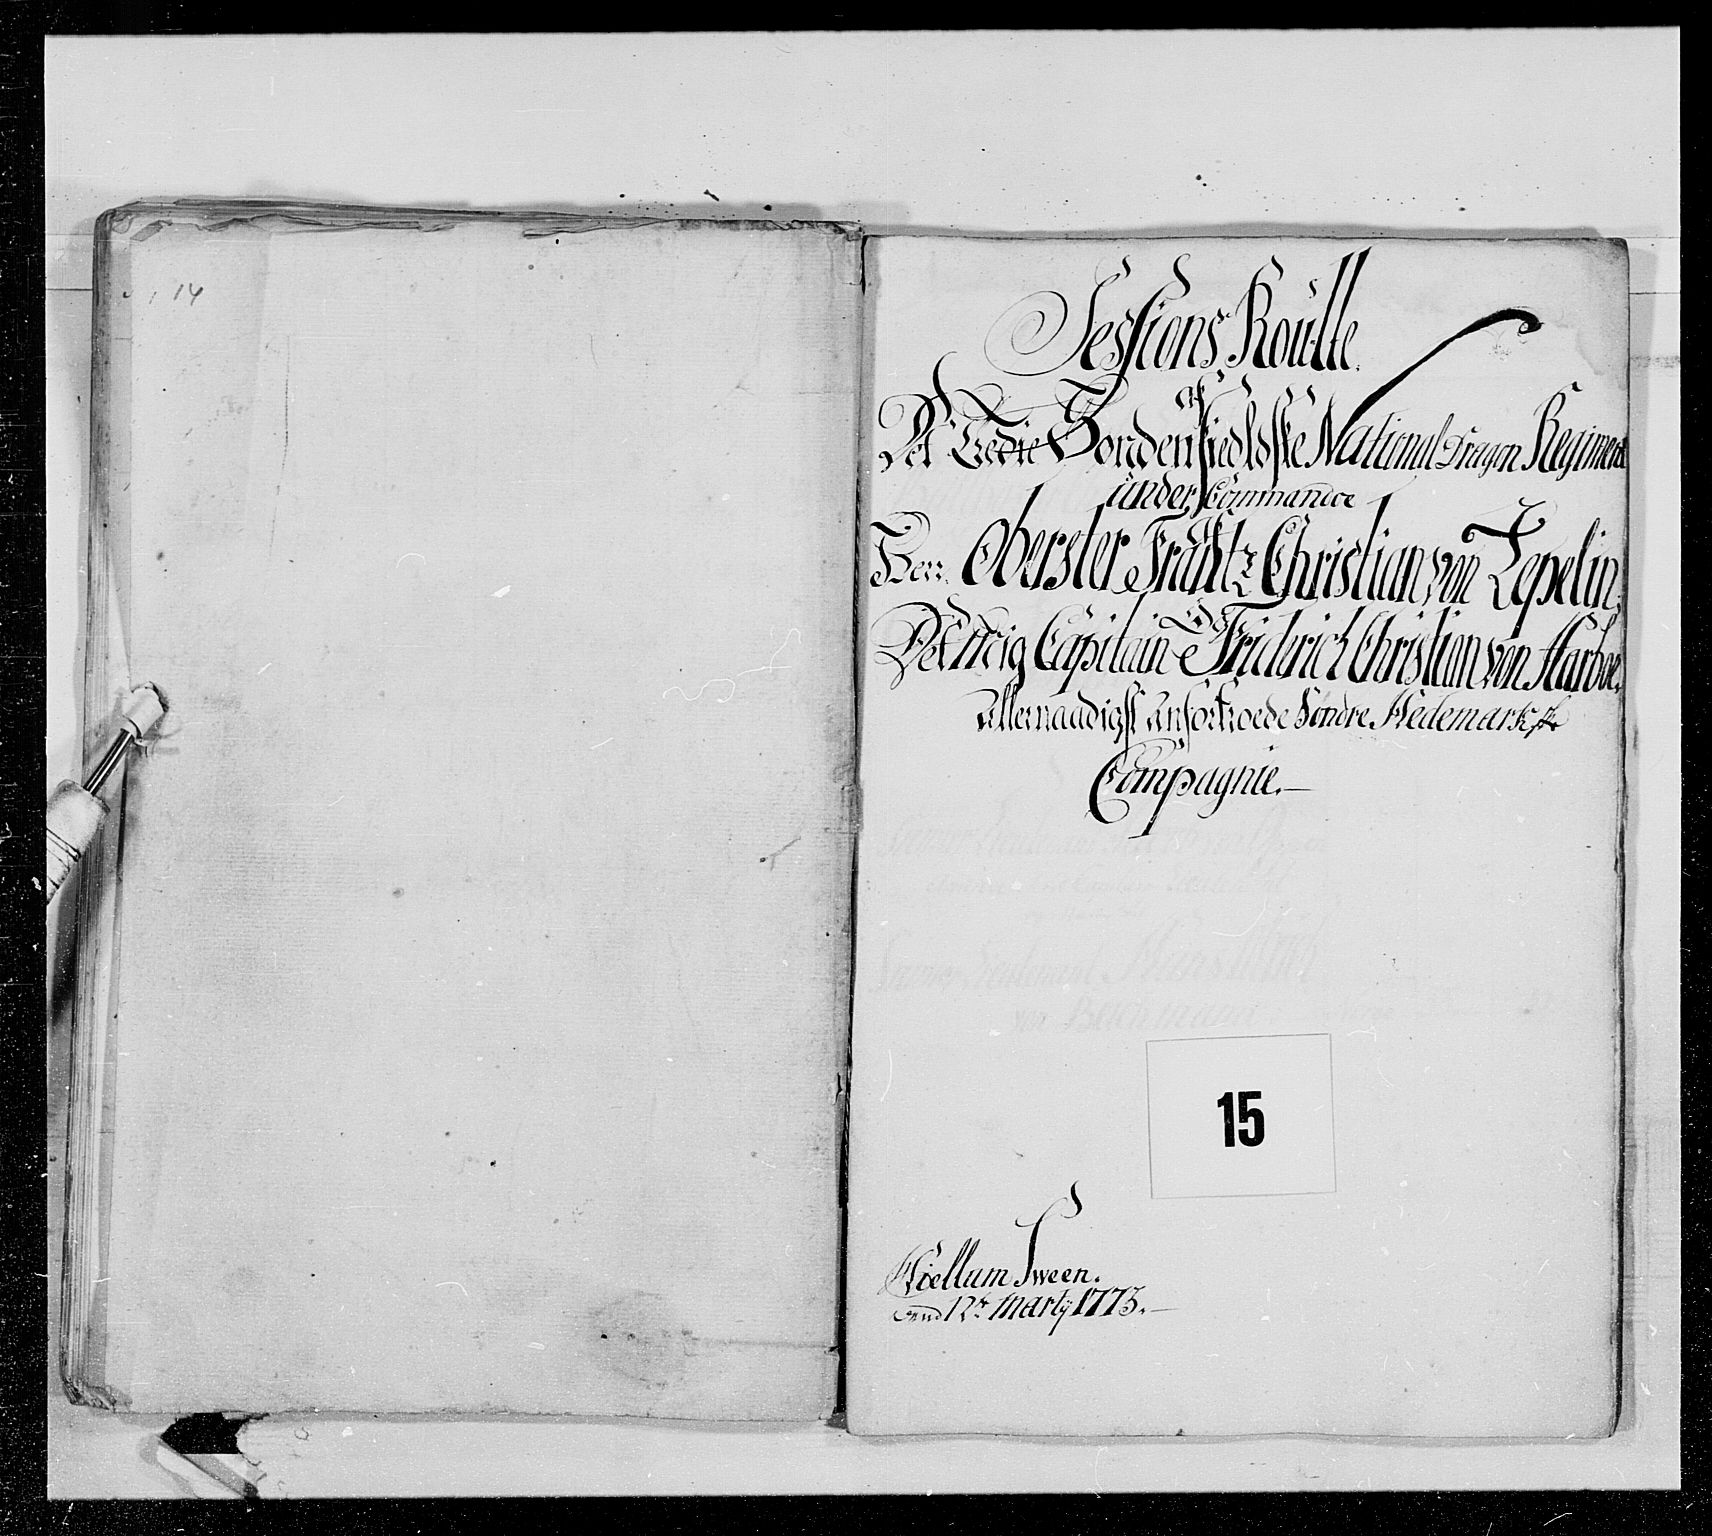 14
Sessions Roulle
af
Det 3die Söndenfieldske National Dragon Regiment
under Commandoe
Herr Oberster Frantz Christian von Zepelin,
Det mig Capitain Friderich Christian von Harboe,
Allernaadigst anfortroede Söndre Hedemarkske
Compagnie.
Lieutenant
von
15
Hiellum Sween.
end 12te Marty 1773.